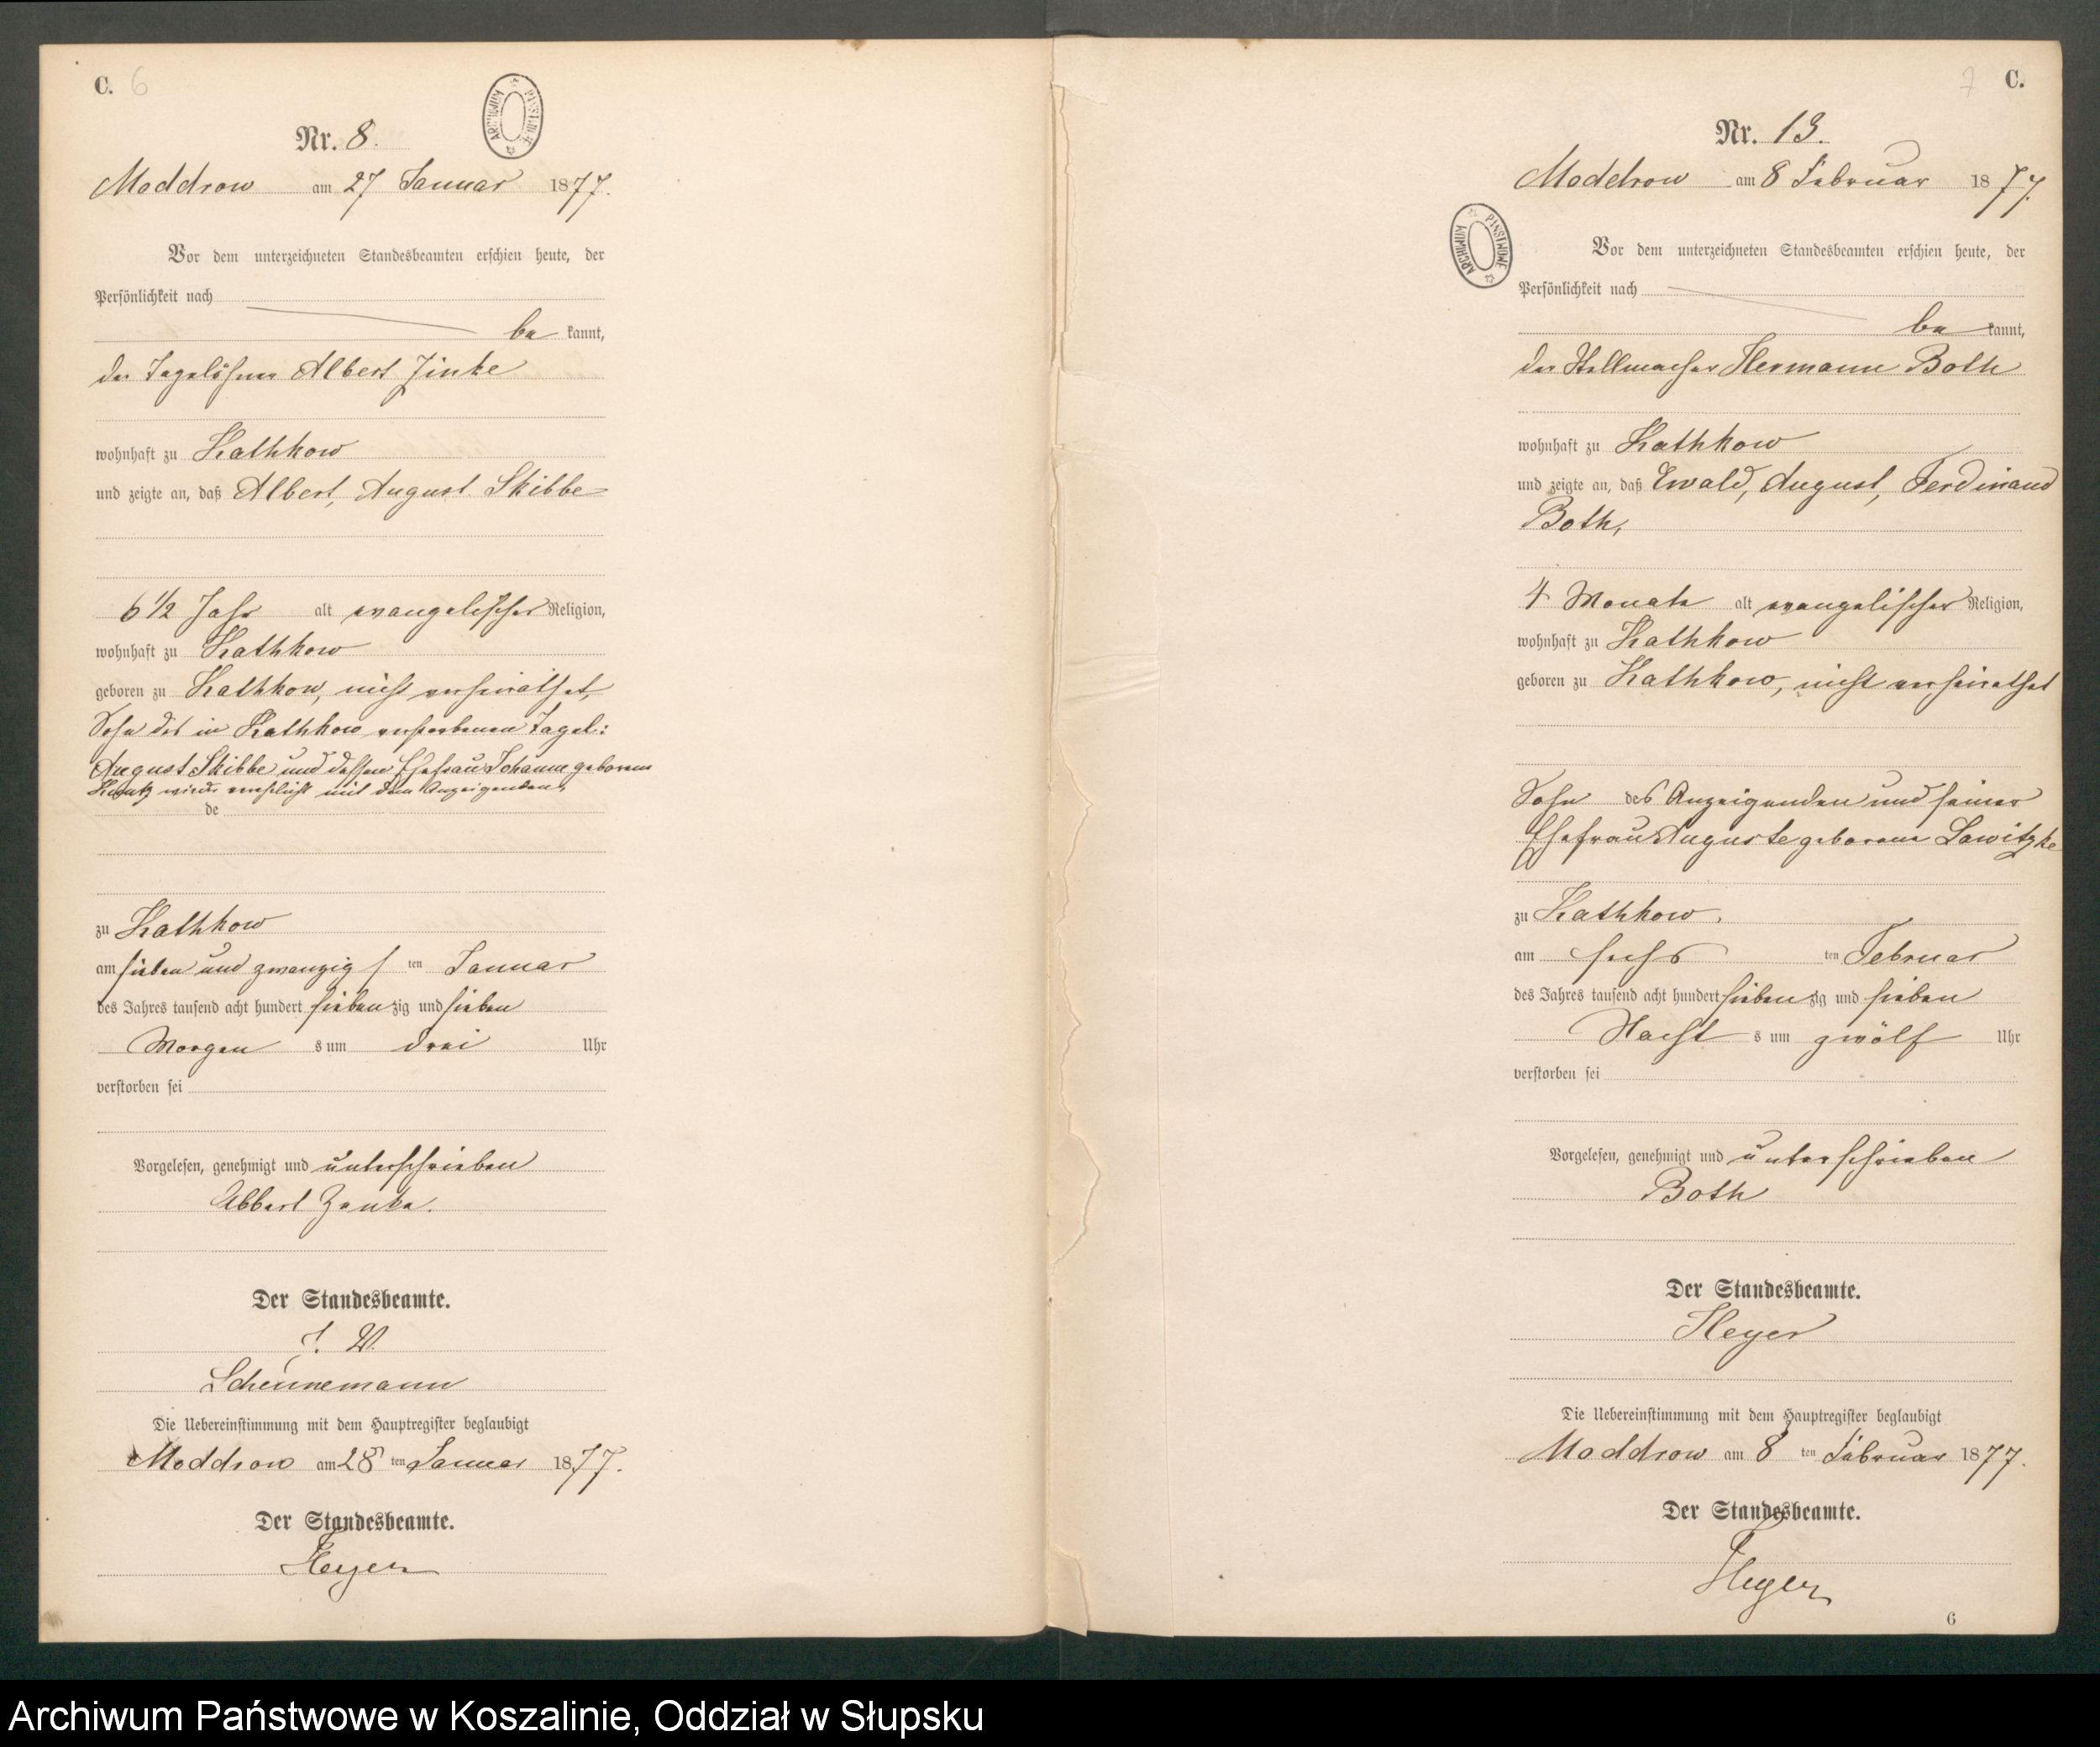 C. 6
ARCHIWUM PAŃSTWOWE
Nr. 8.
Moddrow am 27 Januar 1877.
Vor dem unterzeichneten Standesbeamten erschien heute, der
Persönlichkeit nach
be kannt,
der Tagelöhner Albert Zinke
wohnhaft zu Kathkow
und zeigte an, daß Albert, August Skibbe
6 1/2 Jahr alt evangelischer Religion,
wohnhaft zu Kathkow
geboren zu Kathkow, nicht verheirathet,
Sohn des in Kathkow verstorbenen Tagel:
August Skibbe und dessen Ehefrau Johanne geborene
wieder verehelicht mit dem Anzeigenden,
de
zu Kathkow
am sieben und zwanzig ten Januar
des Jahres tausend acht hundert sieben zig und sieben
Morgen s um drei Uhr
verstorben sei
Vorgelesen, genehmigt und unterschrieben
Albert Zenke.
Der Standesbeamte.
J. V.
Scheunemann
Die Uebereinstimmung mit dem Hauptregister beglaubigt
Moddrow am 28 ten Januar 1877.
Der Standesbeamte.
Heyer
7 C.
Nr. 13.
Moddrow am 8 Februar 1877.
ARCHIWUM PAŃSTWOWE
Vor dem unterzeichneten Standesbeamten erschien heute, der
Persönlichkeit nach
be kannt,
der Stellmacher Hermann Both
wohnhaft zu Kathkow
und zeigte an, daß Ewald, August, Ferdinand
Both,
4 Monate alt evangelischer Religion,
wohnhaft zu Kathkow
geboren zu Kathkow, nicht verheirathet
Sohn des Anzeigenden und seiner
Ehefrau Auguste geborene Lawitzke
zu Kathkow,
am sechs ten Februar
des Jahres tausend acht hundert sieben zig und sieben
Nacht s um zwölf Uhr
verstorben sei
Vorgelesen, genehmigt und unterschrieben
Both
Der Standesbeamte.
Heyer
Die Uebereinstimmung mit dem Hauptregister beglaubigt
Moddrow am 8 ten Februar 1877.
Der Standesbeamte.
Heyer
6
Archiwum Państwowe w Koszalinie, Oddział w Słupsku